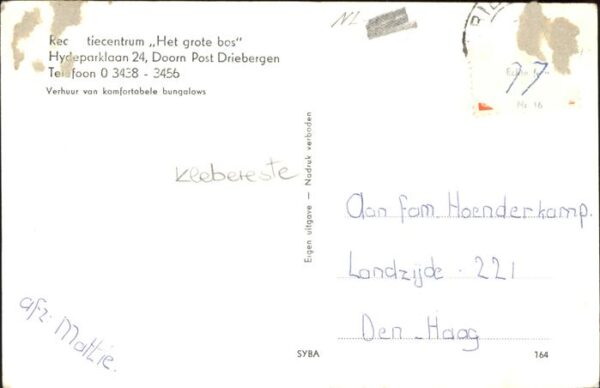 NL
Rec tiecentrum „Het grote bos"
Hydeparklaan 24, Doorn Post Driebergen
Telefoon 0 3438 - 3456
Verhuur van komfortabele bungalows
Klebereste
Eigen uitgave — Nadruk verboden
77
Nr. 16
Aan fam. Hoenderkamp.
Landzijde . 221
Den - Haag
afz: Mattie.
SYBA
164